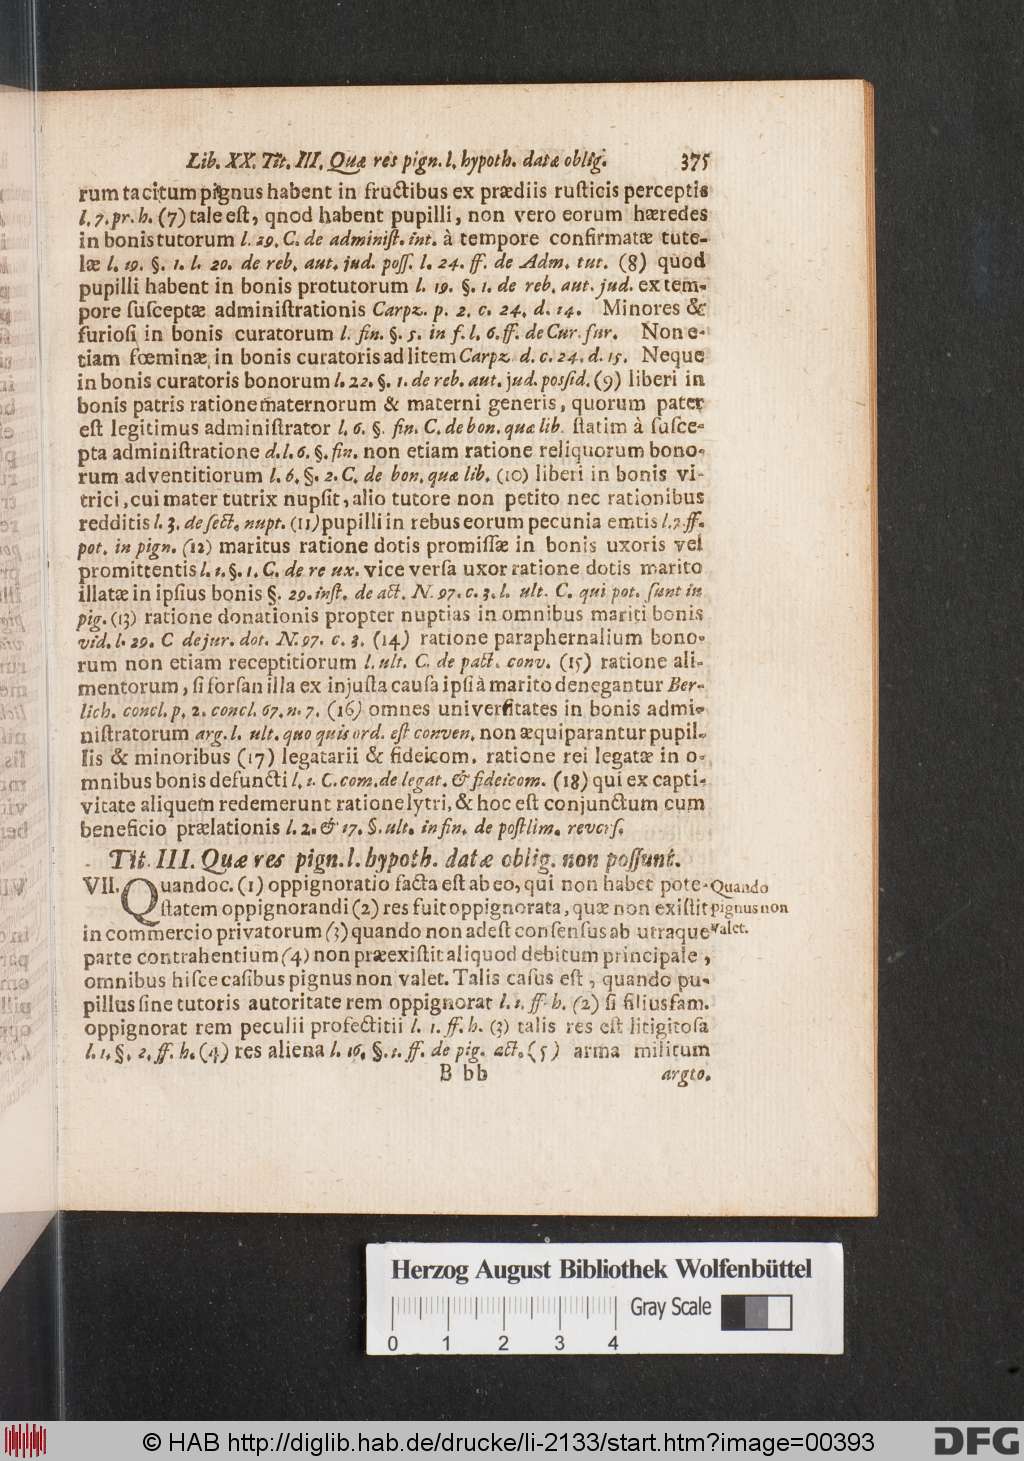 Lib. XX. Tit. III. Quæ res pign. l. hypoth. datæ oblig. 375
rum tacitum pignus habent in fructibus ex prædiis rusticis perceptis
l. 7. pr. h. (7) tale est, qnod habent pupilli, non vero eorum hæredes
in bonis tutorum l. 29. C. de administ. int. à tempore confirmatæ tute-
læ l. 19. §. 1. l. 20. de reb. aut. jud. poss. l. 24. ff. de Adm. tut. (8) quod
pupilli habent in bonis protutorum l. 19. §. 1. de reb. aut. jud. ex tem-
pore susceptæ administrationis Carpz. p. 2. c. 24. d. 14. Minores &
furiosi in bonis curatorum l. fin. §. 5. in f. l. 6. ff. de Cur. fur. Non e-
tiam fœminæ in bonis curatoris ad litem Carpz. d. c. 24. d. 15. Neque
in bonis curatoris bonorum l. 22. §. 1. de reb. aut. jud. possid. (9) liberi in
bonis patris ratione maternorum & materni generis, quorum pater
est legitimus administrator l. 6. §. fin. C. de bon. quæ lib. statim à susce-
pta administratione d. l. 6. §. fin. non etiam ratione reliquorum bono-
rum adventitiorum l. 6. §. 2. C. de bon. quæ lib. (10) liberi in bonis vi-
trici, cui mater tutrix nupsit, alio tutore non petito nec rationibus
redditis l. 3. de sect. nupt. (11) pupilli in rebus eorum pecunia emtis l. 7. ff.
pot. in pign. (12) maritus ratione dotis promissæ in bonis uxoris vel
promittentis l. 1. §. 1. C. de re ux. vice versa uxor ratione dotis marito
illatæ in ipsius bonis §. 29. inst. de act. N. 97. c. 3. l. ult. C. qui pot. sunt in
pig. (13) ratione donationis propter nuptias in omnibus mariti bonis
vid. l. 29. C de jur. dot. N. 97. c. 3. (14) ratione paraphernalium bono-
rum non etiam receptitiorum l. ult. C. de pact. conv. (15) ratione ali-
mentorum, si forsan illa ex injusta causa ipsi à marito denegantur Ber-
lich. concl. p. 2. concl. 67. n. 7. (16) omnes universitates in bonis admi-
nistratorum arg. l. ult. quo quis ord. est conven. non æquiparantur pupil-
lis & minoribus (17) legatarii & fideicom. ratione rei legatæ in o-
mnibus bonis defuncti l. 1. C. com. de legat. & fideicom. (18) qui ex capti-
vitate aliquem redemerunt ratione lytri, & hoc est conjunctum cum
beneficio prælationis l. 2. & 17. §. ult. in fin. de postlim. revers.
Tit. III. Quæ res pign. l. hypoth. datæ oblig. non possunt.
VII. Quandoc. (1) oppignoratio facta est ab eo, qui non habet pote- Quando
statem oppignorandi (2) res fuit oppignorata, quæ non existit pignus non
in commercio privatorum (3) quando non adest consensus ab utraque valet.
parte contrahentium (4) non præexistit aliquod debitum principale,
omnibus hisce casibus pignus non valet. Talis casus est, quando pu-
pillus sine tutoris autoritate rem oppignorat l. 1. ff. h. (2) si filiusfam.
oppignorat rem peculii profectitii l. 1. ff. h. (3) talis res est litigitosa
l. 1. §. 2. ff. h. (4) res aliena l. 16. §. 1. ff. de pig. act. (5) arma militum
B bb argto.
Herzog August Bibliothek Wolfenbüttel
Gray Scale
0 1 2 3 4
© HAB http://diglib.hab.de/drucke/li-2133/start.htm?image=00393
DFG